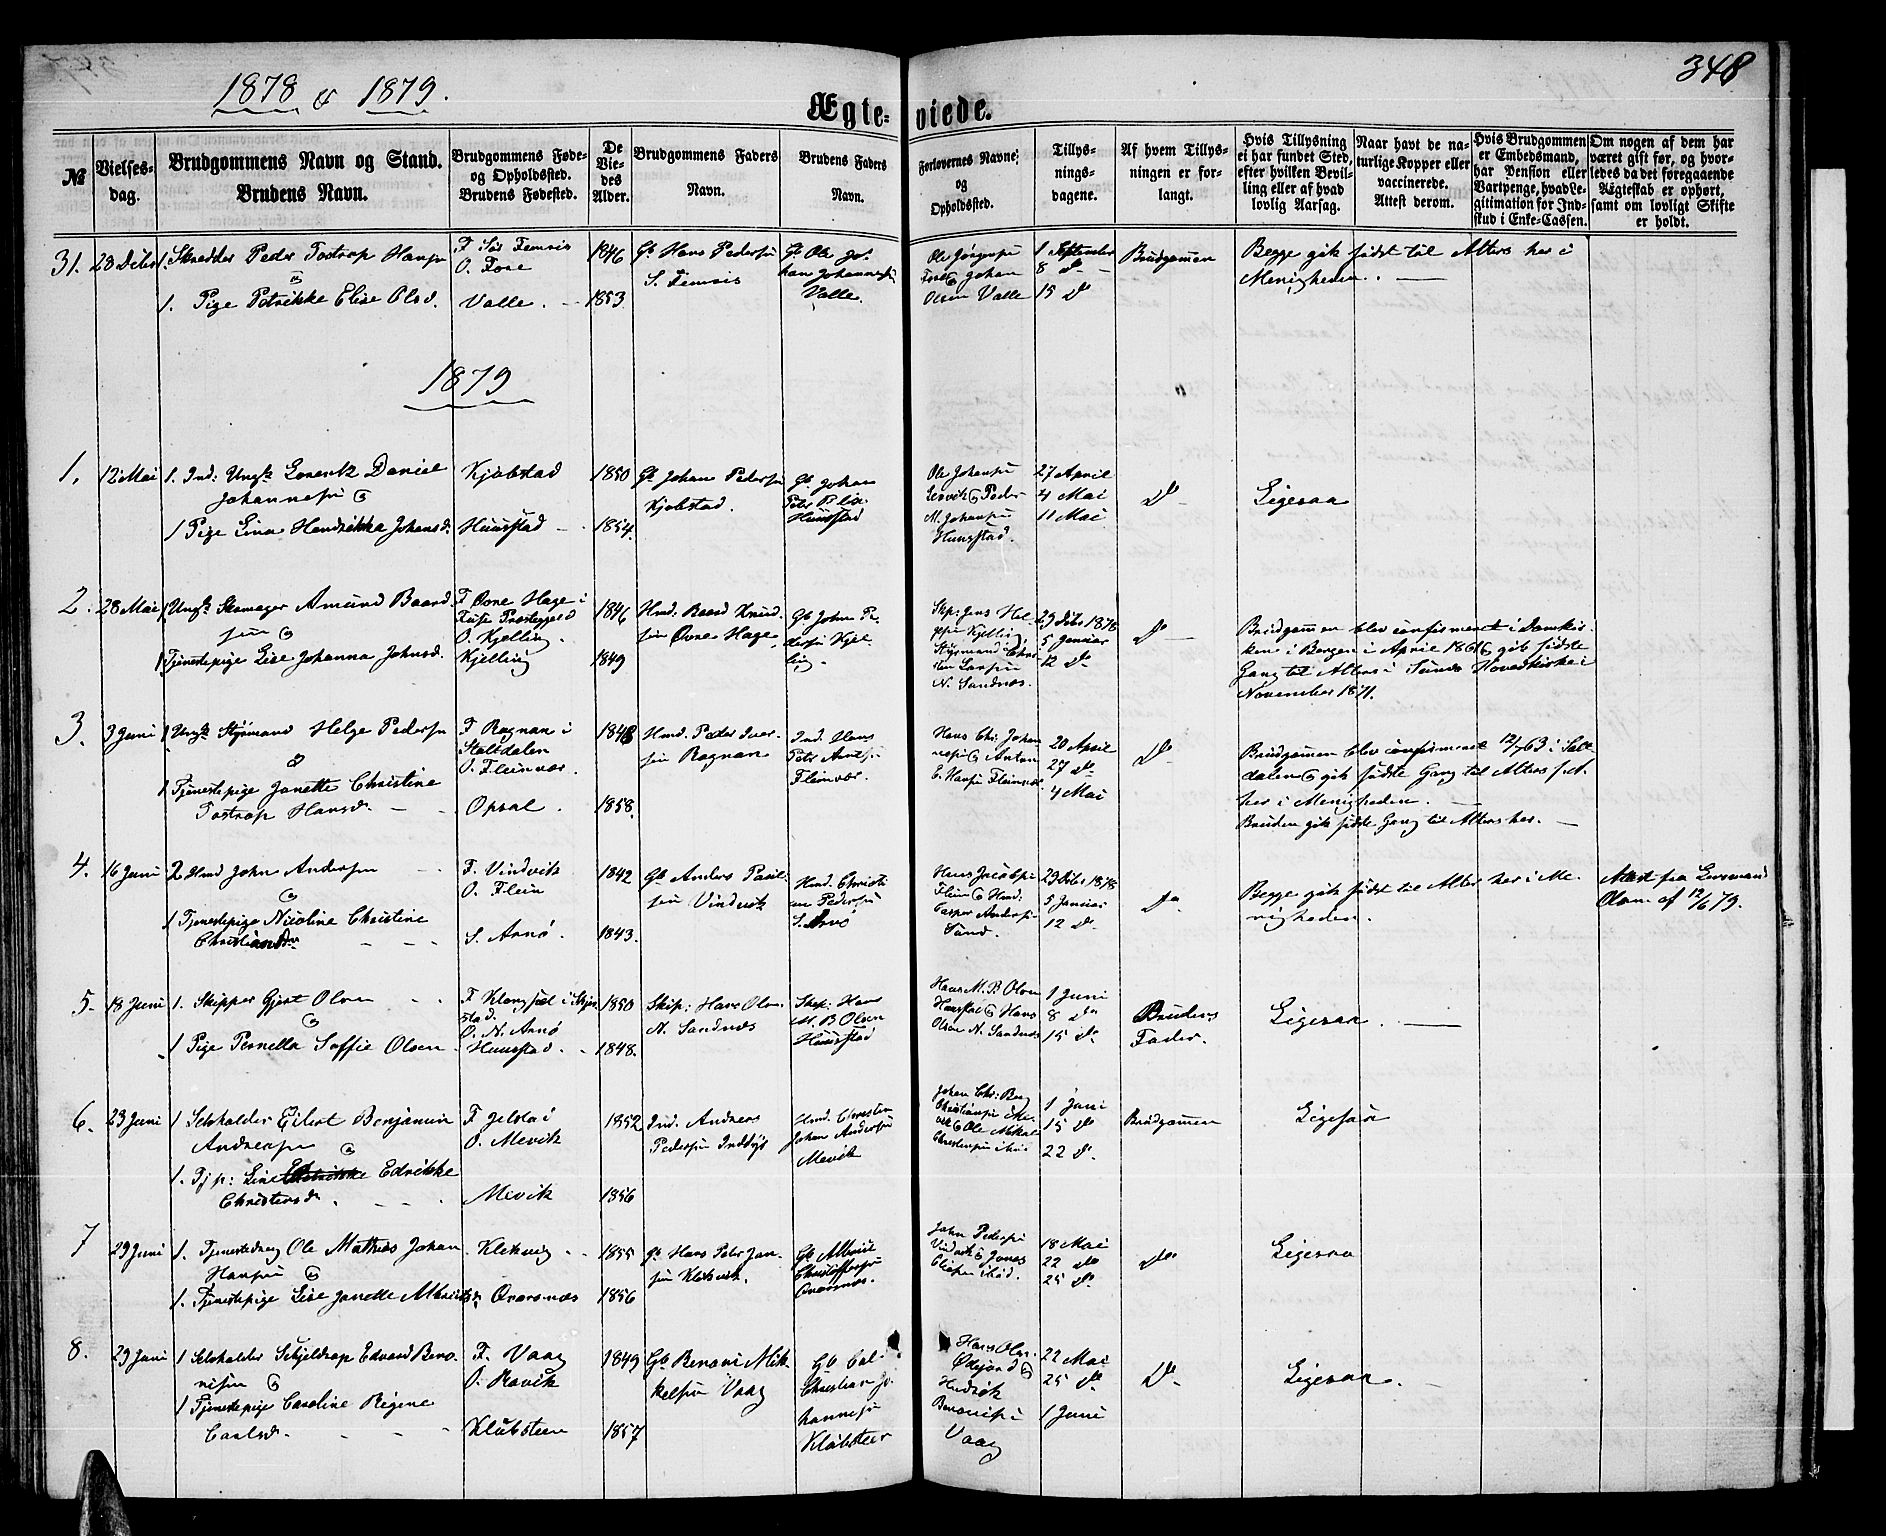 348
1878 & 1879.
Ægte- viede.
№
Vielses-
dag.
Brudgommens Navn og Stand.
Brudens Navn.
Brudgommens Føde-
og Opholdssted.
Brudens Fødested.
De
Vie-
des
Alder.
Brudgommens Faders
Navn.
Brudens Faders
Navn.
Forlovernes Navne,
og
Opholdssted.
Tillys-
nings-
dagene.
Af hvem Tillys-
ningen er for-
langt.
Hvis Tillysning
ei har fundet Sted,
efter hvilken Bevil-
ling eller af hvad
lovlig Aarsag.
Naar havt de na-
turlige Kopper eller
vaccinerede.
Attest derom.
Hvis Brudgommen
er Embedsmand,
har Pension eller
Vartpenge, hvad Le-
gitimation for Ind-
skud i Enke-Cassen.
Om nogen af dem har
været gift før, og hvor-
ledes da det foregaaende
Ægteskab er ophørt,
samt om lovligt Skifte
er holdt.
31. 28 Dcbr 1. Skrædder Peder Tostrup Hansen
1. Pige Petrikke Elise Olsd.
F Sør Femris
O. Fore
Valle.
1846
1853
Gb Hans Pedersen
S. Femris
Gb Ole Jo-
han Johannesen
Valle.
Ole Jørgensen
Fore & Johan
Olsen Valle
1 September
8 do
15 do
Brudgommen
Begge gik sidst til Alters her i
Menigheden.
1879
1. 12 Mai 1. Ind: Ungk. Lorentz Daniel
Johannesen &
1 Pige Lina Hendrikke Johansd.
Kjøbstad
Hunstad
1850
1854.
Gb Johan Pedersen
Kjøbstad.
Gb Johan
Peter
Hunstad
Ole Johansen
Leirvik & Peder
M. Johansen
Hunstad.
27 April
4 Mai
11 Mai
do
Ligesaa
2. 28 Mai 1 Ungk. Skomager Amund Baard-
sen &
1 Tjenestepige Lise Johanna Johnsd.
F Øvre Hage i
Fuse Præstegjeld
O. Kjelling.
Kjelling
1846
1849
Hmd: Baard Knud-
sen Øvre Hage,
Gb John Pe-
dersen Kjel-
ling.
Skp: Jens Hel-
gesen Kjelling,
Styrmand Chri-
sten Larsen
N. Sandnæs.
29 Dcbr 1878
5 Januar
12 do
do
Brudgommen blev confirmeret i Domkir-
ken i Bergen i April 1861 & gik sidste
Gang til Alters i Sunds Hovedkirke i
November 1871.
3. 9 Juni 1 Ungk. Styrmand Helge Pedersen
&
1 Tjenestepige Janette Christine
Tostrup Hansd.
F Rognan i
Saltdalen
O. Fleinvær.
Opsal.
1848
1858.
Hmd. Peder Iver-
sen Rognan
Ind. Hans
Peter Arntsen
Fleinvær.
Hans Chr. Johan-
nesen & Anton
E. Hansen Fleinvær
20 April
27 do
4 Mai
do
Brudgommen blev confirmeret 12/7 63 i Salt-
dalen & gik sidste Gang til Alters f. A.
her i Menigheden.
Bruden gik sidste Gang til Alters her.
4. 16 Juni 2 Hmd John Andersen
&
1 Tjenestepige Nicoline Christine
Christiansdr
F. Vindvik
O. Flein
S. Arnø.
1842
1843.
Gb Anders Paul-
sen Vindvik
Hmd. Christi-
an Pedersen
S. Arnø
Hans Jacobsen
Flein & Hmd:
Casper Andersen
Sund.
29 Dcbr 1878
5 Januar
12 do
do
Begge gik sidst til Alter her i Me-
nigheden.
Attest fra Lensmand
Olsen af 12/6 79.
5. 18 Juni 1. Skipper Gjert Olsen
&
1 Pige Pernella Soffie Olsen
F Klongsel i Skjer-
stad.
O. N. Arnø
Hunstad.
1850
1848.
Skip: Hans Olsen
N. Sandnæs
Skip: Hans
M. B Olsen
Hunstad
Hans M. B. Olsen
Hunstad & Hans
Olsen N. Sandnæs
1 Juni
8 do
15 do
Brudens
Fader.
Ligesaa.
6. 23 Juni 1 Selvholder Eilert Benjamin
Andreasen &
1. Tjp: Line Edrikke
Christensd.
F Jelstad
O. Mevik
Mevik
1852
1856
Ind. Andreas
Pedersen Indbys
Hmd. Christen
Johan Andersen
Mevik
Johan Chr: Berg
Christiansen i Me-
vik & Ole Mikal
Christensen ibid
1 Juni
15 do
22 do
Brudgommen
Ligesaa
7 29 Juni 1. Tjenestedreng Ole Mathias Johan
Hansen &
1. Tjenestepige Lise Janette Albrigtsd.
Klekvig
Qvarsnæs
1855
1856
Gb Hans Peter Jan-
sen Klekvik.
Gb Albrigt
Christoffersen
Qvarsnæs.
John Pedersen
Vindvik & Jonas
Olsen ibid.
18 Mai
22 do
25 do
do
Ligesaa
8. 29 Juni 1 Selvholder Schjeldrup Edvard Bero-
nisen &
1 Tjenestepige Caroline Regine
Carlsd.
F. Vaag
O. Ravik
Klubsteen
1849
1857
Gb Beroni Mik-
kelsen Vaag
Gb Carl
Christian Jo-
hannesen
Klubsteen
Hans Olsen
Ødejord &
Hendrik
Beronisen
Vaag
22 Mai
25 do
1 Juni
do
Ligesaa.